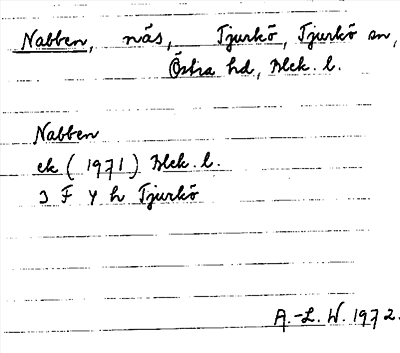 Nabben, näs, Tjurkö, Tjurkö sn,
Östra hd, Blek. l.
Nabben
ek (1971) Blek. l.
3 F 4 h Tjurkö
A.-L. W. 1972.